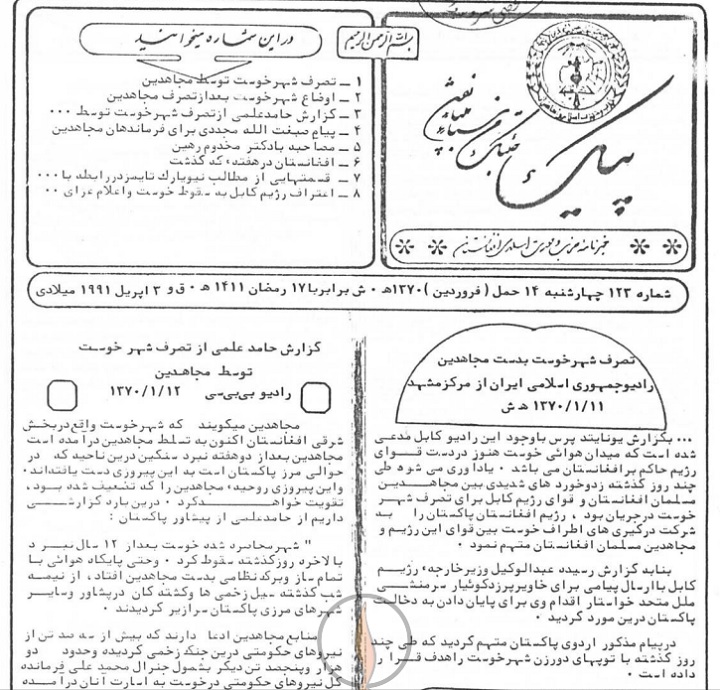 بسم الله الرحمن الرحیم
در این شماره میخوانید
۱ ــ تصرف شهر خوست توسط مجاهدین
۲ ــ اوضاع شهر خوست بعد از تصرف مجاهدین
۳ ــ گزارش حامد علمی از تصرف شهر خوست توسط ۰۰۰
۴ ــ پیام صبغت الله مجددی برای فرماندهان مجاهدین
۵ ــ مصاحبه با دکتر مخدوم رهین
۶ ــ افغانستان در هفتهء که گذشت
۷ ــ قسمتهایی از مطالب نیویارک تایمز در رابطه با ۰۰۰
۸ ــ اعتراف رژیم کابل به سقوط خوست و اعلام عزای ۰۰
پیک
شماره ۱۲۳ چهارشنبه ۱۴ حمل ( فروردین ) ۱۳۷۰ هـ ۰ ش برابر با ۱۷ رمضان ۱۴۱۱ هـ ۰ ق و ۳ اپریل ۱۹۹۱ میلادی
تصرف شهر خوست بدست مجاهدین
رادیو جمهوری اسلامی ایران از مرکز مشهد
۱۳۷۰/۱/۱۱ هـ ش
۰۰۰ بگزارش یونایتد پرس باوجود این رادیو کابل مدعی
شده است که میدان هوائی خوست هنوز دردست قــوای
رژیم حاکم برافغانستان می باشد ۰ یادآوری می شود طی
چند روز گذشته زدوخورد های شدیدی بین مجاهــدین
مسلمان افغانستان و قوای رژیم کابل برای تصرف شهــر
خوست درجریان بود ۰ رژیم افغانستان پاکستان را بـــه
شرکت درگیری های اطراف خوست بین قوای این رژیم و
مجاهدین مسلمان افغانستان متهم نمود ۰
بنابه گزارش رسیده عبدالوکیل وزیرخارجهء رژیــم
کابل باارسال پیامی برای خاویرپرزدکوئیار سرمنشــی
ملل متحد خواستار اقدام وی برای پایان دادن به دخالت
پاکستان درین مورد گردید ۰
درپیام مذکور اردوی پاکستان متهم گردید که طی چند
روز گذشته با توپهای دورزن شهرخوست راهدف قــرار
داده است ۰
گزارش حامد علمی از تصرف شهر خوست
توسط مجاهدین
رادیو بی‌بی‌سی ۱۳۷۰/۱/۱۲
مجاهدین میگویند که شهرخوست واقع دربخش
شرقی افغانستان اکنون به تسلط مجاهدین درآمده است
مجاهدین بعداز دوهفته نبرد سنگین درین ناحیه که در
حوالی مرز پاکستان است به این پیروزی دست یافته‌اند۰
واین پیروزی روحیهء مجاهدین را که تضعیف شده بـود،
تقویت خواهــــدکرد ۰ درین باره گزارشــی
داریم از حامدعلمی از پیشاور پاکستان :
" شهرمحاصره شده خوست بعداز ۱۲ سال نبــرد
بالاخره روزگذشته سقوط کرد ۰ وحتی پایگاه هوائی بـا
تمام ساز وبرگ نظامی بدست مجاهدین افتاد، از نیمــه
شب گذشته سیل زخمی ها وکشته گان درپشاور وسایــر
شهرهای مرزی پاکستان سرازیر گردیدند ۰
منابع مجاهدین ادعا دارند که بیش از سه صد تن از
نیروهای حکومتی درین جنگ زخمی گردیده وحدود دو
هزار وپنجصد تن دیگر بشمول جنرال محمد علی فرمانده
کل نیروهای حکومتی درخوست به اسارت آنان درآمـــده